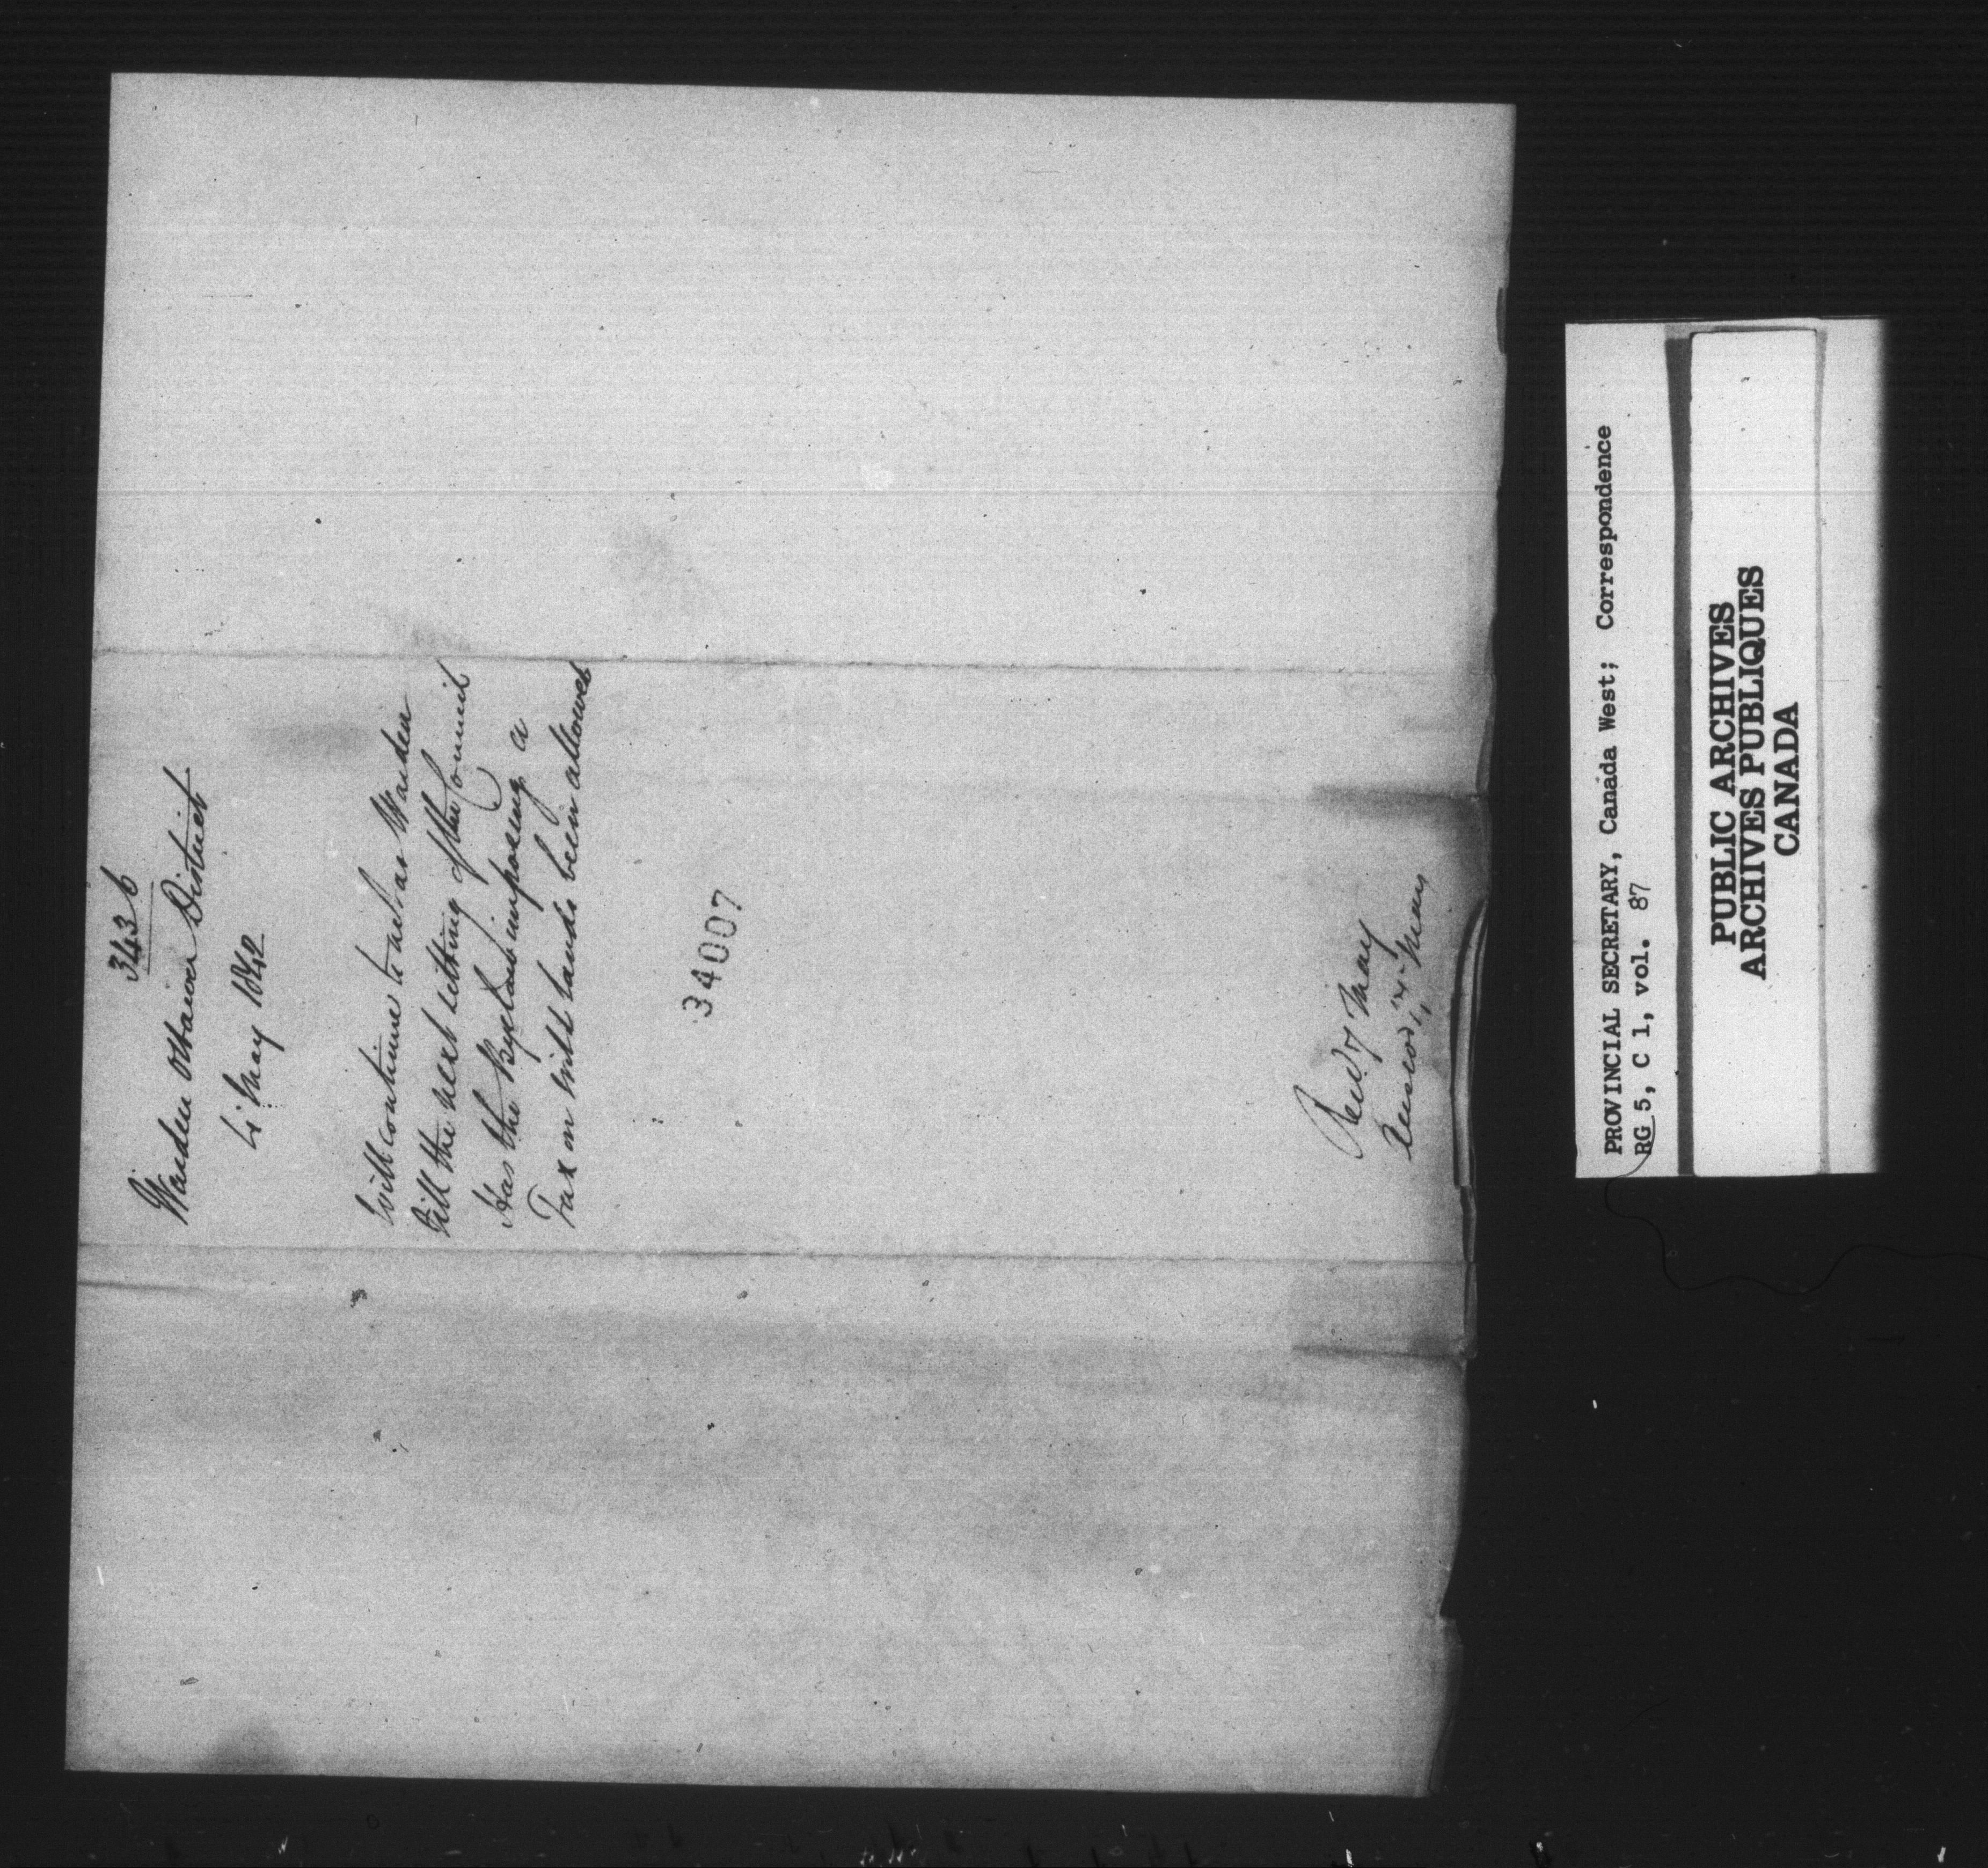 3436
Warden Ottawa District
4 May 1842
Will continue to act as Warden
Till the next sitting of the Council
Has the Byelaw imposing a
Tax on wild lands been allowed
34007
Recd 7 May
Answd
PROVINCIAL SECRETARY, Canada West; Correspondence
RG 5, C 1, vol. 87
PUBLIC ARCHIVES
ARCHIVES PUBLIQUES
CANADA